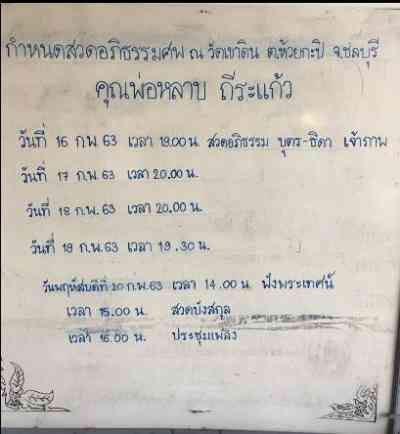 กำหนดสวดอภิธรรมศพ ณ วัดเขาดิน ต.ห้วยกะปิ จ.ชลบุรี
คุณพ่อหลาบ ถีระแก้ว
วันที่ 16 ก.พ. 63 เวลา 19.00 น. สวดอภิธรรม บุตร-ธิดา เจ้าภาพ
วันที่ 17 ก.พ. 63 เวลา 20.00 น.
วันที่ 18 ก.พ. 63 เวลา 20.00 น.
วันที่ 19 ก.พ. 63 เวลา 19.30 น.
วันพฤหัสบดีที่ 20 ก.พ. 63 เวลา 14.00 น. ฟังพระเทศน์
เวลา 15.00 น. สวดบังสกุล
เวลา 16.00 น. ประชุมเพลิง